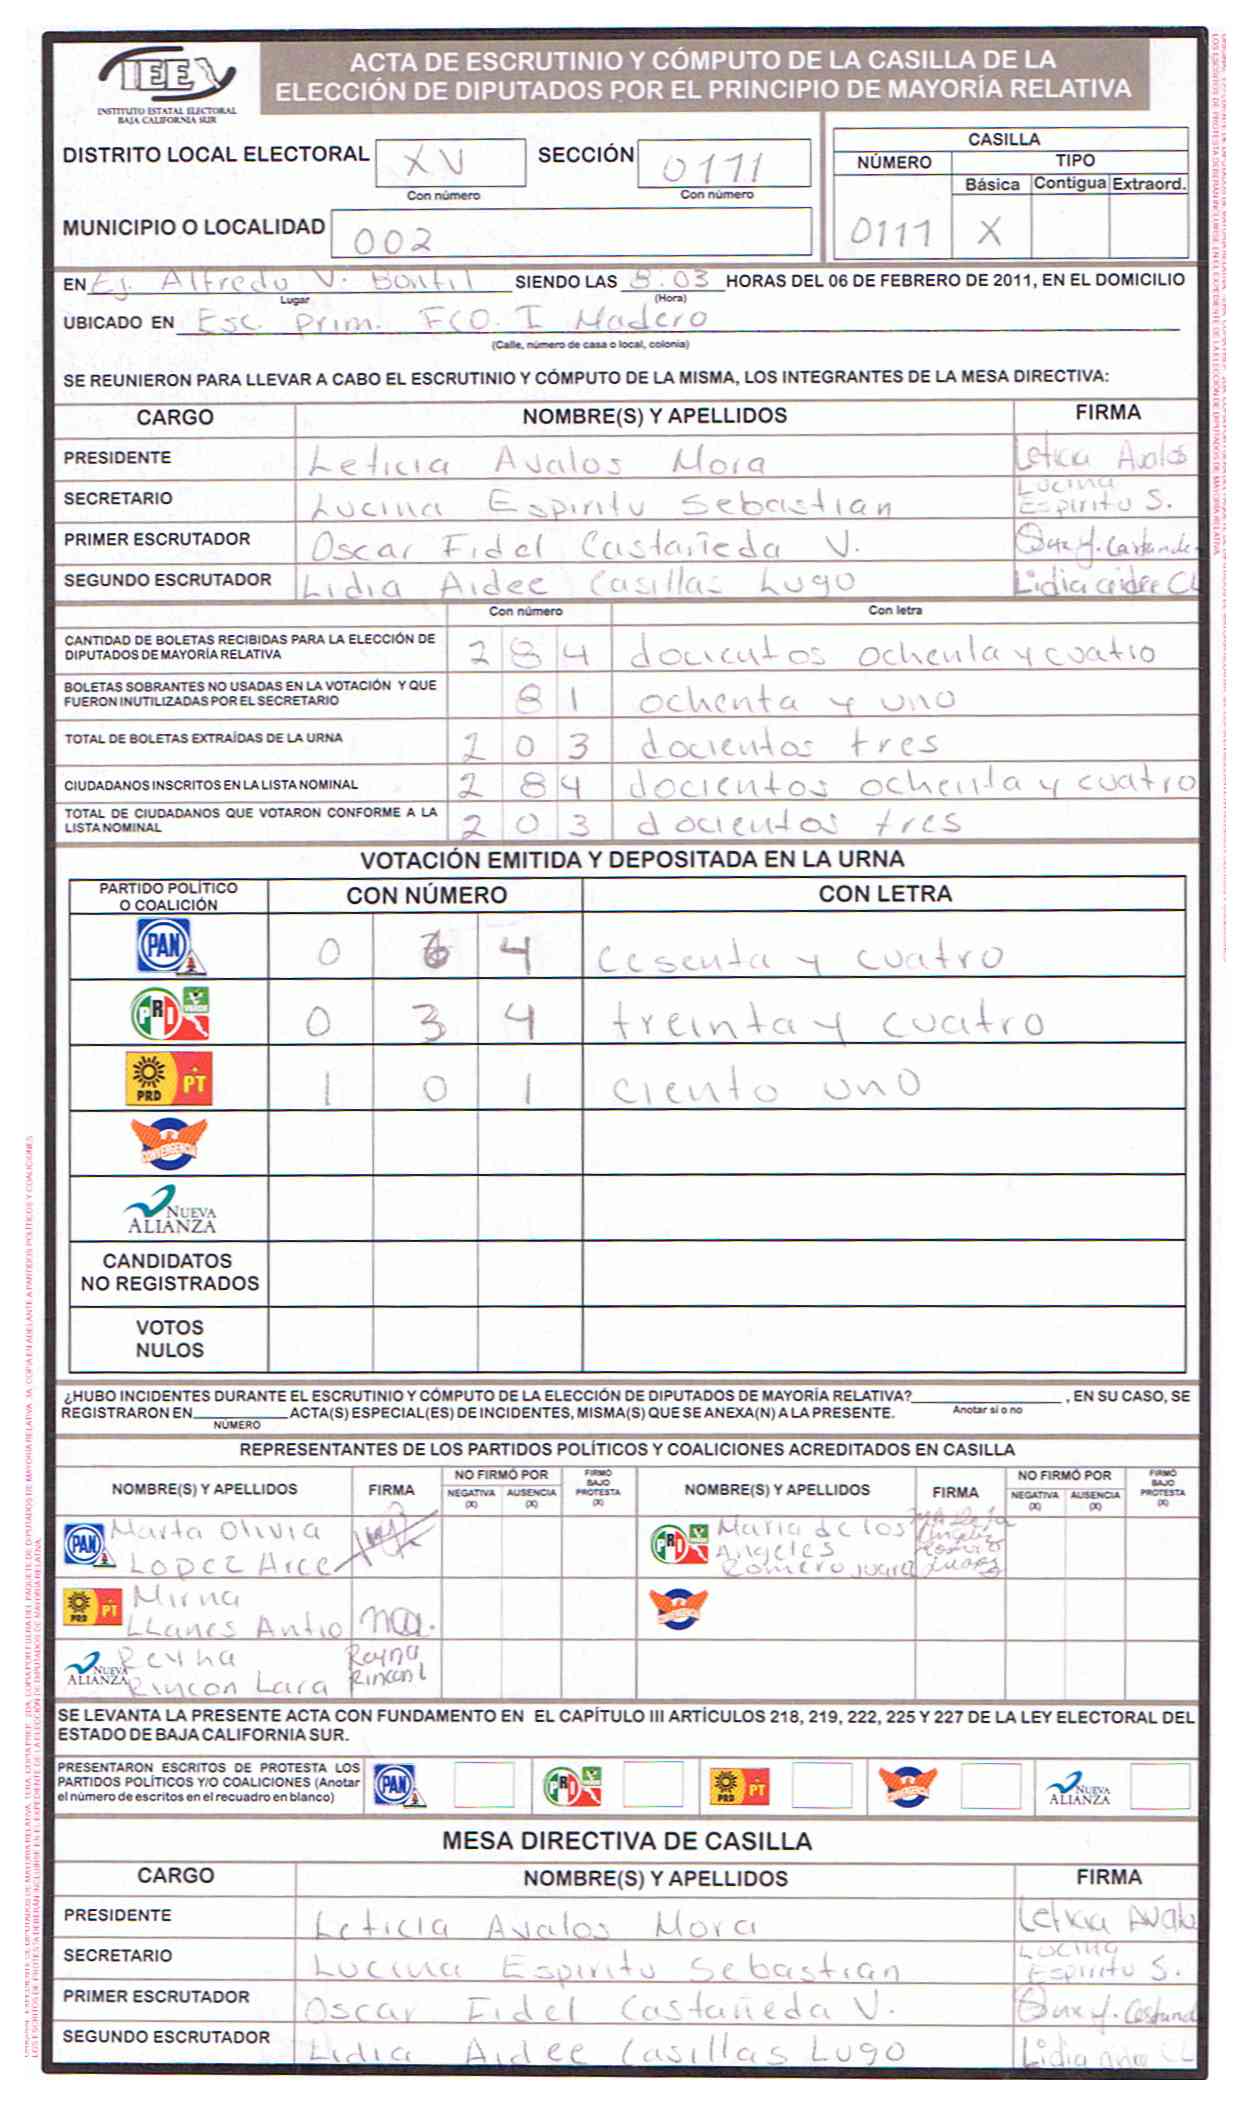 IEE
INSTITUTO ESTATAL ELECTORAL
BAJA CALIFORNIA SUR
ACTA DE ESCRUTINIO Y CÓMPUTO DE LA CASILLA DE LA
ELECCIÓN DE DIPUTADOS POR EL PRINCIPIO DE MAYORÍA RELATIVA
DISTRITO LOCAL ELECTORAL XV SECCIÓN 0111
Con número Con número
CASILLA
NÚMERO TIPO
Básica Contigua Extraord.
0111 X
MUNICIPIO O LOCALIDAD 002
EN Ej. Alfredo V. Bonfil SIENDO LAS 8:03 HORAS DEL 06 DE FEBRERO DE 2011, EN EL DOMICILIO
Lugar (Hora)
UBICADO EN Esc. prim. FCO. I Madero
(Calle, número de casa o local, colonia)
SE REUNIERON PARA LLEVAR A CABO EL ESCRUTINIO Y CÓMPUTO DE LA MISMA, LOS INTEGRANTES DE LA MESA DIRECTIVA:
CARGO NOMBRE(S) Y APELLIDOS FIRMA
PRESIDENTE Leticia Avalos Mora Leticia Avalos
SECRETARIO Lucina Espiritu Sebastian Lucina Espiritu S.
PRIMER ESCRUTADOR Oscar Fidel Castañeda V.
SEGUNDO ESCRUTADOR Lidia Aidee Casillas Lugo Lidia aidee CL
Con número Con letra
CANTIDAD DE BOLETAS RECIBIDAS PARA LA ELECCIÓN DE
DIPUTADOS DE MAYORÍA RELATIVA 2 8 4 docientos ochenta y cuatro
BOLETAS SOBRANTES NO USADAS EN LA VOTACIÓN Y QUE
FUERON INUTILIZADAS POR EL SECRETARIO 8 1 ochenta y uno
TOTAL DE BOLETAS EXTRAÍDAS DE LA URNA 2 0 3 docientos tres
CIUDADANOS INSCRITOS EN LA LISTA NOMINAL 2 8 4 docientos ochenta y cuatro
TOTAL DE CIUDADANOS QUE VOTARON CONFORME A LA
LISTA NOMINAL 2 0 3 docientos tres
VOTACIÓN EMITIDA Y DEPOSITADA EN LA URNA
PARTIDO POLÍTICO
O COALICIÓN CON NÚMERO CON LETRA
PAN 0 6 4 cesenta y cuatro
PRI VERDE 0 3 4 treinta y cuatro
PRD PT 1 0 1 ciento uno
CONVERGENCIA
NUEVA
ALIANZA
CANDIDATOS
NO REGISTRADOS
VOTOS
NULOS
¿HUBO INCIDENTES DURANTE EL ESCRUTINIO Y CÓMPUTO DE LA ELECCIÓN DE DIPUTADOS DE MAYORÍA RELATIVA? , EN SU CASO, SE
Anotar si o no
REGISTRARON EN ACTA(S) ESPECIAL(ES) DE INCIDENTES, MISMA(S) QUE SE ANEXA(N) A LA PRESENTE.
NÚMERO
REPRESENTANTES DE LOS PARTIDOS POLÍTICOS Y COALICIONES ACREDITADOS EN CASILLA
NOMBRE(S) Y APELLIDOS FIRMA NO FIRMÓ POR NEGATIVA (X) AUSENCIA (X) FIRMÓ BAJO PROTESTA (X) NOMBRE(S) Y APELLIDOS FIRMA NO FIRMÓ POR NEGATIVA (X) AUSENCIA (X) FIRMÓ BAJO PROTESTA (X)
PAN Marta Olivia
Lopez Arce
PRI Maria de los
Angeles
Romero juarez
PRD PT Mirna
LLanes Antio
NUEVA ALIANZA Reyna
Rincon Lara
Reyna
Rincon L
SE LEVANTA LA PRESENTE ACTA CON FUNDAMENTO EN EL CAPÍTULO III ARTÍCULOS 218, 219, 222, 225 Y 227 DE LA LEY ELECTORAL DEL
ESTADO DE BAJA CALIFORNIA SUR.
PRESENTARON ESCRITOS DE PROTESTA LOS
PARTIDOS POLÍTICOS Y/O COALICIONES (Anotar
el número de escritos en el recuadro en blanco)
PAN PRI PRD PT NUEVA ALIANZA
MESA DIRECTIVA DE CASILLA
CARGO NOMBRE(S) Y APELLIDOS FIRMA
PRESIDENTE Leticia Avalos Mora Leticia Avalo
SECRETARIO Lucina Espiritu Sebastian Lucina Espiritu S.
PRIMER ESCRUTADOR Oscar Fidel Castañeda V.
SEGUNDO ESCRUTADOR Lidia Aidee Casillas Lugo Lidia CL